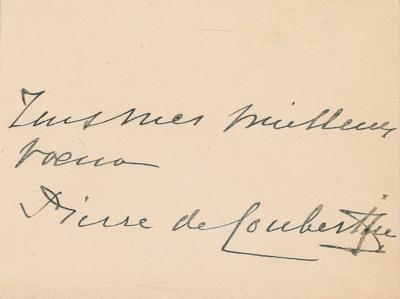 Tous mes meilleurs
voeux
Pierre de Coubertin